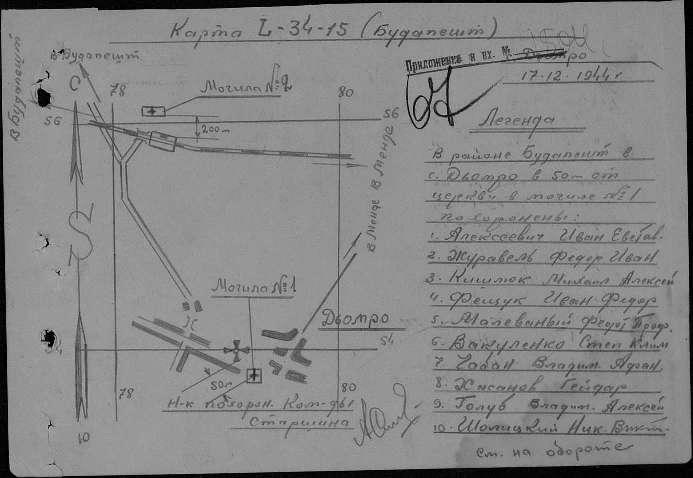 Карта L-34-15 (Будапешт)
Приложение к вх. №
Дьомро
17-12-1944 г
в Будапешт
В Будапешт
С
78
Могила №2
80
56
56
200 м
в Менде
В Менде
Могила №1
Дьомро
54
54
50 м
78
80
Н-к похорон. Ком-ды
Старшина
Ю
Легенда
В районе Будапешт в
с. Дьомро в 50 м от
церкви в могиле №1
похоронены:
1. Алексеевич Иван
2. Журавель Федор Иван
3. Кишлюк Михаил Алексей
4. Фещук Иван Федор
5. Малеваный Федот Проф.
6. Вакуленко Степ Клим
7 Чабан Владим. Афан.
8. Хасанов Гейдар
9. Голуб Владим. Алексей
10. Шолицкий Ник. Викт.
См. на обороте